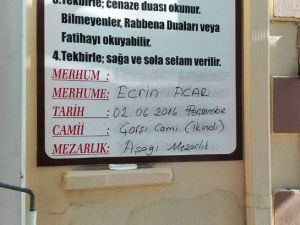 3.Tekbirle; cenaze duası okunur.
Bilmeyenler, Rabbena Duaları veya
Fatihayı okuyabilir.
4.Tekbirle; sağa ve sola selam verilir.
MERHUM :
MERHUME: Ecrin ACAR
TARİH : 02.06.2016 Perşembe
CAMİİ : Çarşı Cami (ikindi)
MEZARLIK: Aşağı Mezarlık